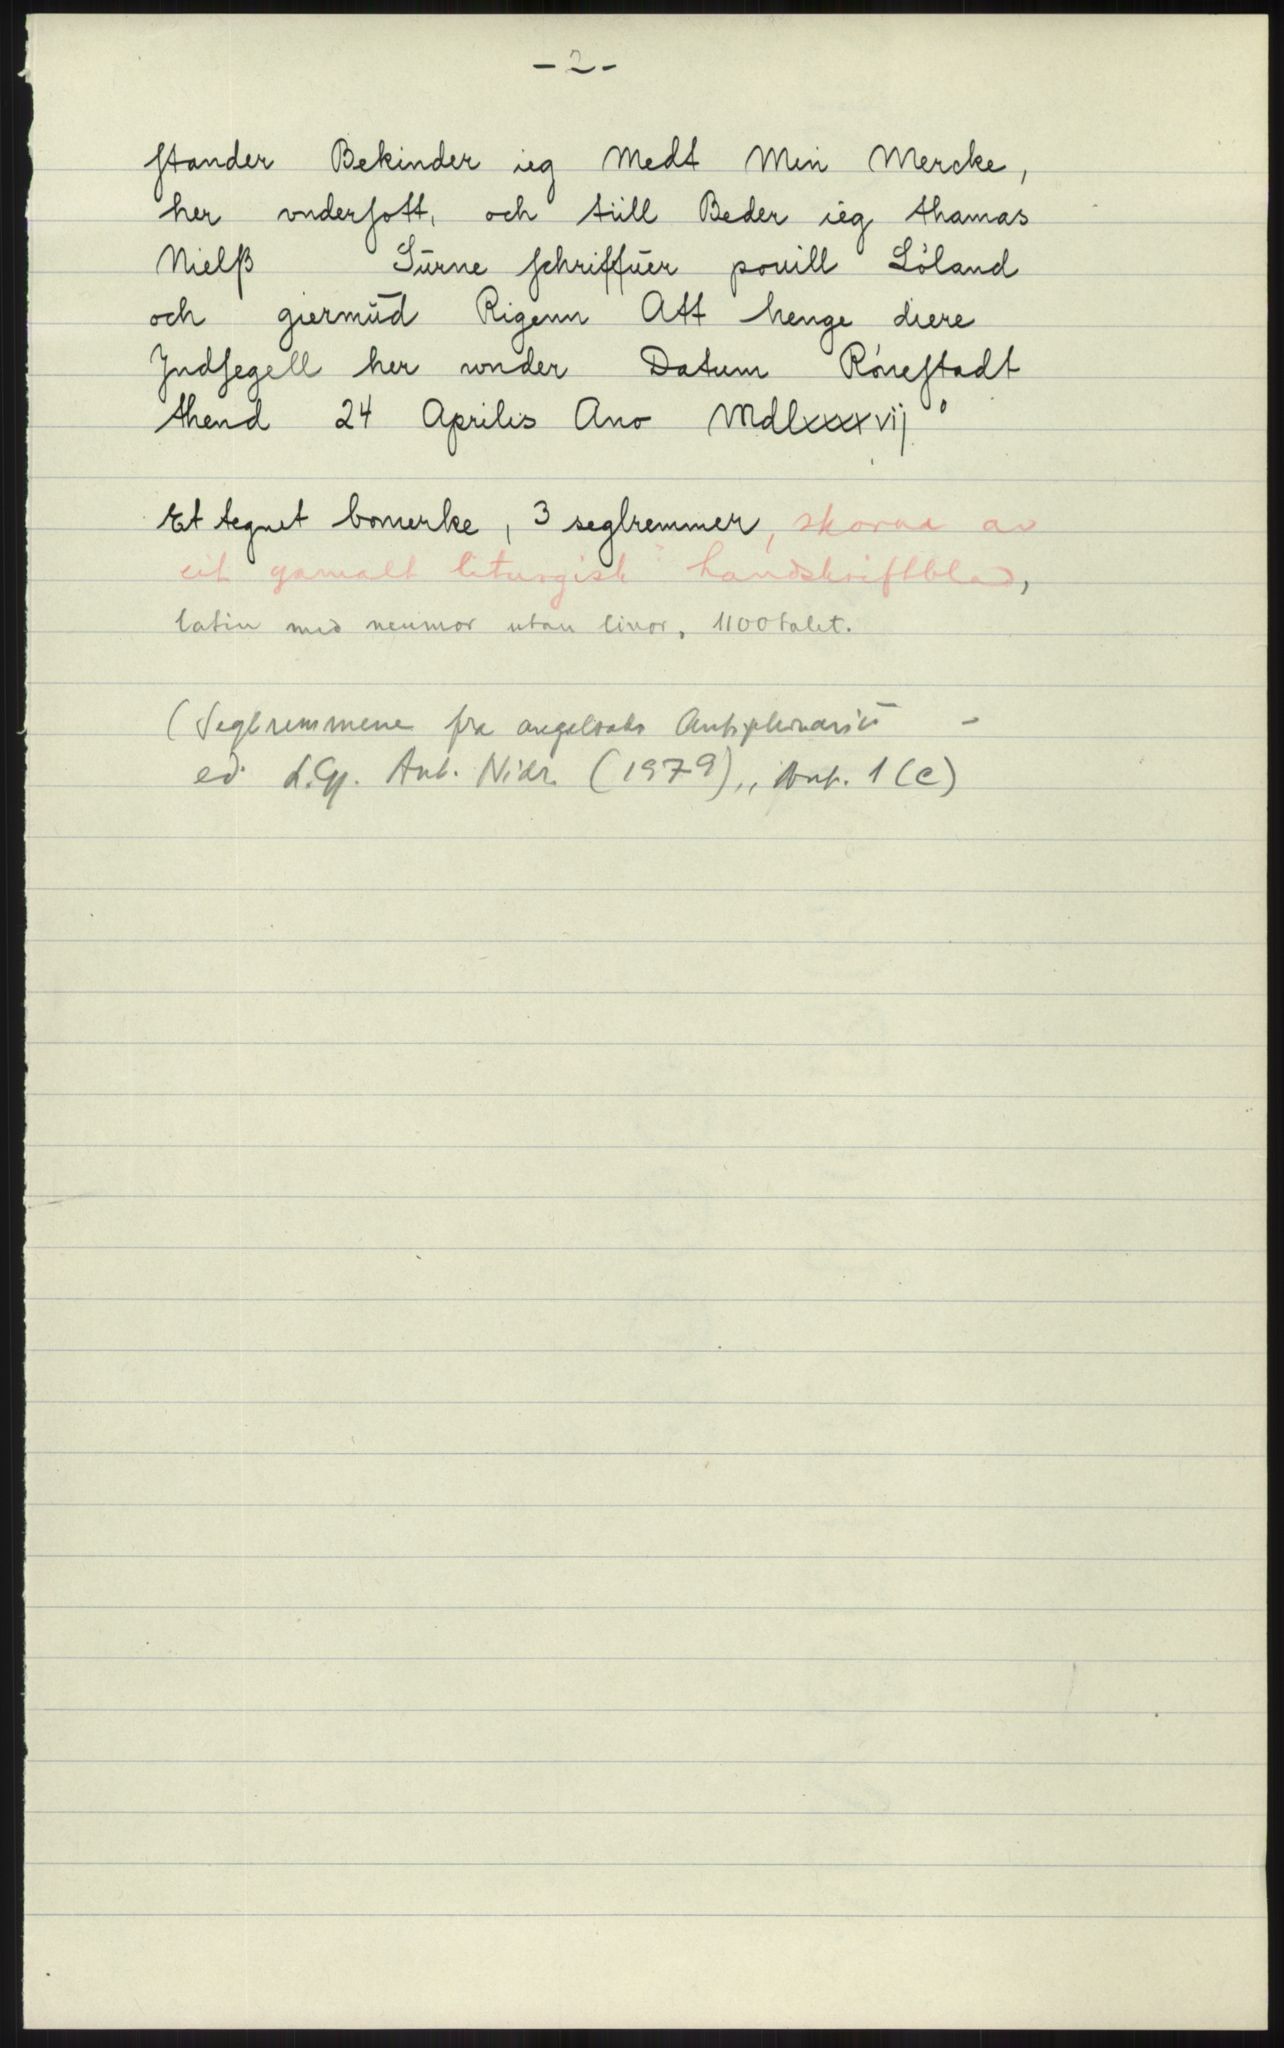 - 2 -
ſtander Bekinder ieg Medt Min Mercke,
her vnderſott, och tüll Beder ieg thamas
Nielß Surne ſchriffuer pouill Lóland
och giermūd Rigenn Att henge diere
Jndſegell her wnder Datum Róneſtadt
thend 24 Aprilis Ano Mdlxxxvij°
Et tegnet bomerke, 3 seglremmer, skorne av
eit gamalt liturgisk handskriftblad,
latin med neumor utan linor, 1100talet.
(Seglremmene fra angelsaks Antiphonariū -
ed. L.G. Ant. Nidr. (1979), 1 (c)